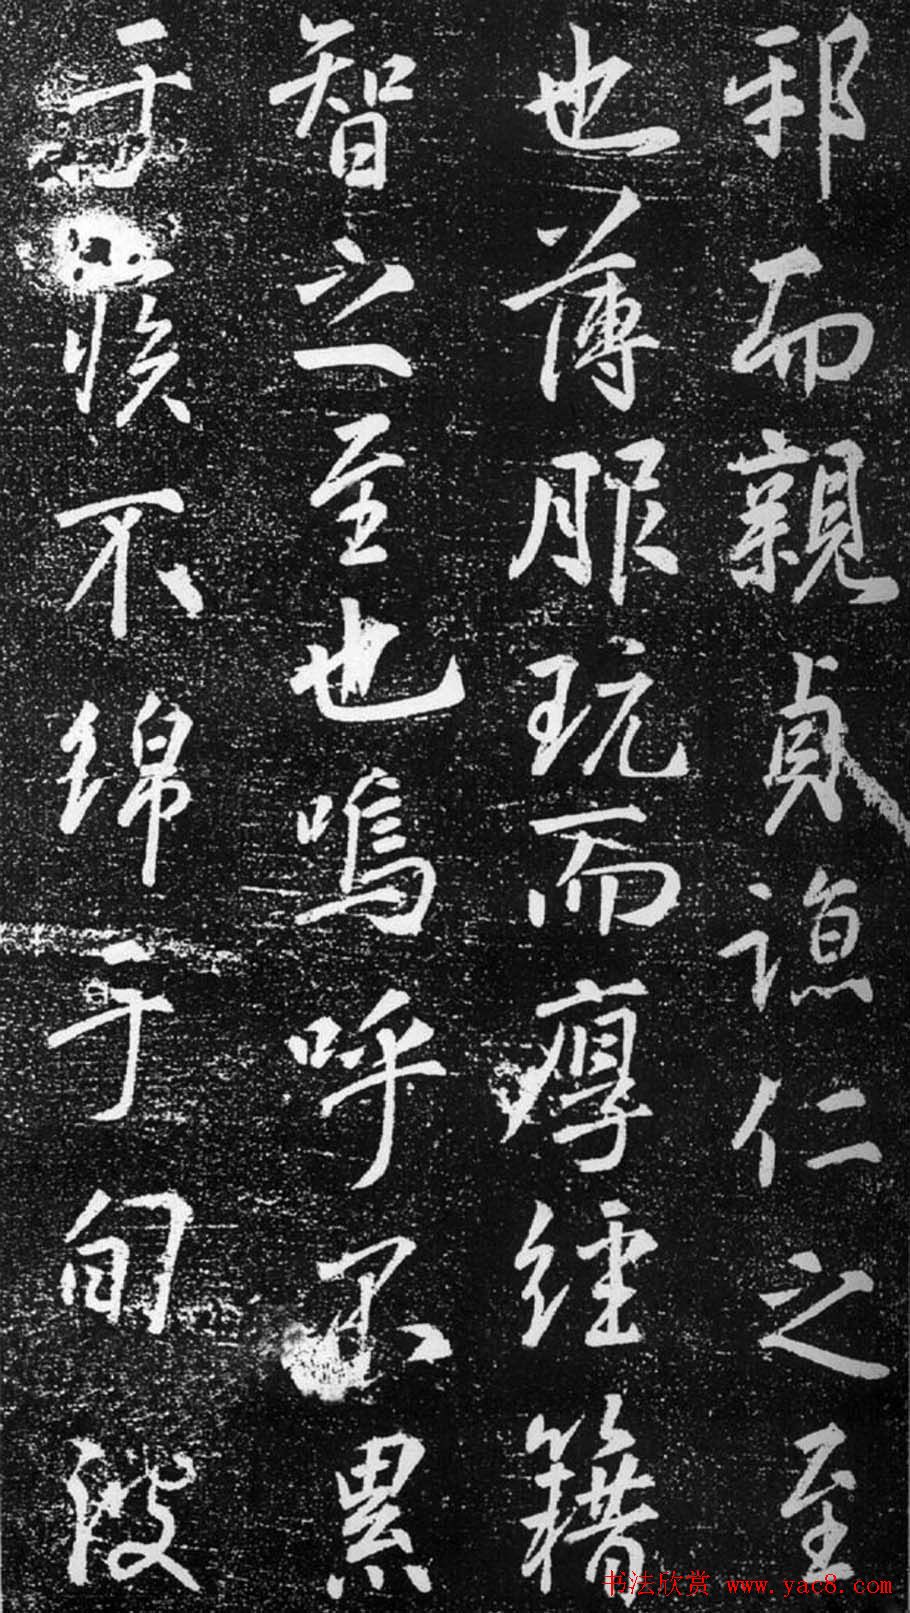 邪而親貞諒仁之至
也薄服玩而厚經籍
智之至也嗚呼不累
于疾不綿于旬沒
书法欣赏 www.yac8.com